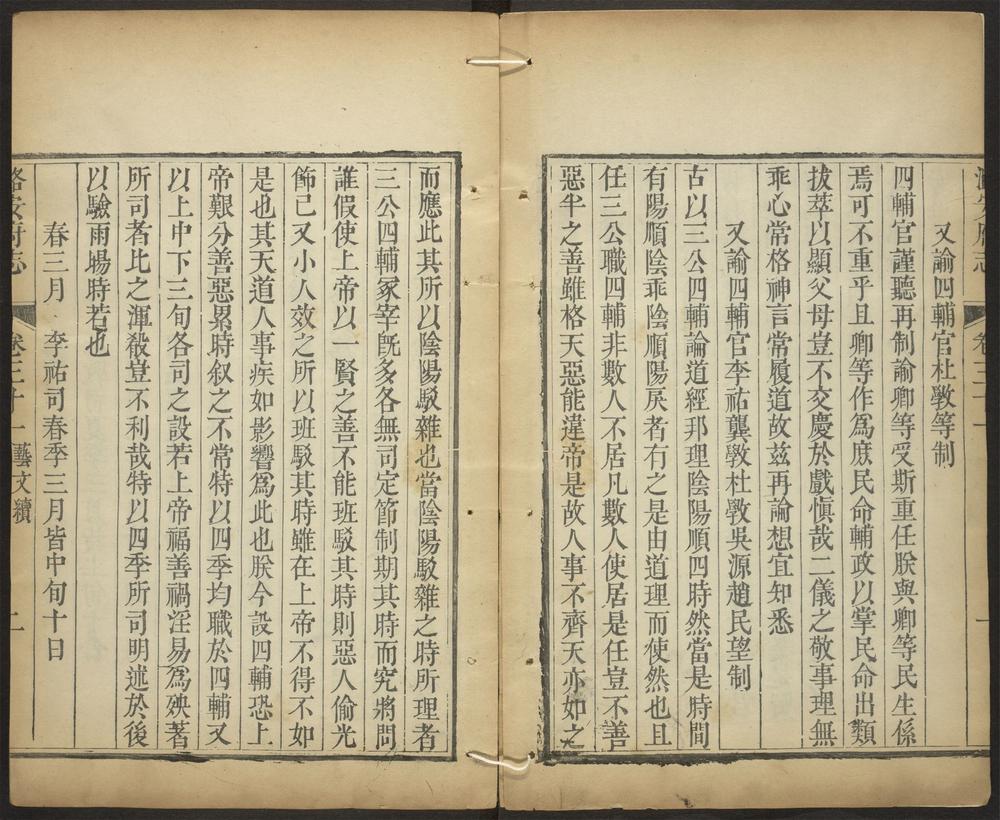 又諭四輔官杜斆等制
四輔官謹聽再制諭卿等受斯重任朕與卿等民生係
焉可不重乎且卿等作爲庶民命輔政以掌民命出類
拔萃以顯父母豈不交慶於戲愼哉二儀之敬事理無
乖心常格神言常履道故茲再諭想宜知悉
又諭四輔官李祐龔斆杜斆吳源趙民望制
古以三公四輔論道經邦理陰陽順四時然當是時間
有陽順陰乖陰順陽戾者有之是由道理而使然也且
任三公職四輔非數人不居凡數人使居是任豈不善
惡半之善雖格天惡能違帝是故人事不齊天亦如之
而應此其所以陰陽駁雜也當陰陽駁雜之時所理者
三公四輔冢宰旣多各無司定節制期其時而究將問
誰假使上帝以一賢之善不能班駁其時則惡人偷光
飾己又小人效之所以班駁其時雖在上帝不得不如
是也其天道人事疾如影響爲此也朕今設四輔恐上
帝艱分善惡累時叙之不常特以四季均職於四輔又
以上中下三旬各司之設若上帝福善禍淫易爲殃著
所司者比之渾殺豈不利哉特以四季所司明述於後
以驗雨暘時若也
春三月 李祐司春季三月皆中旬十日
潞安府志 卷三十一 藝文續 二